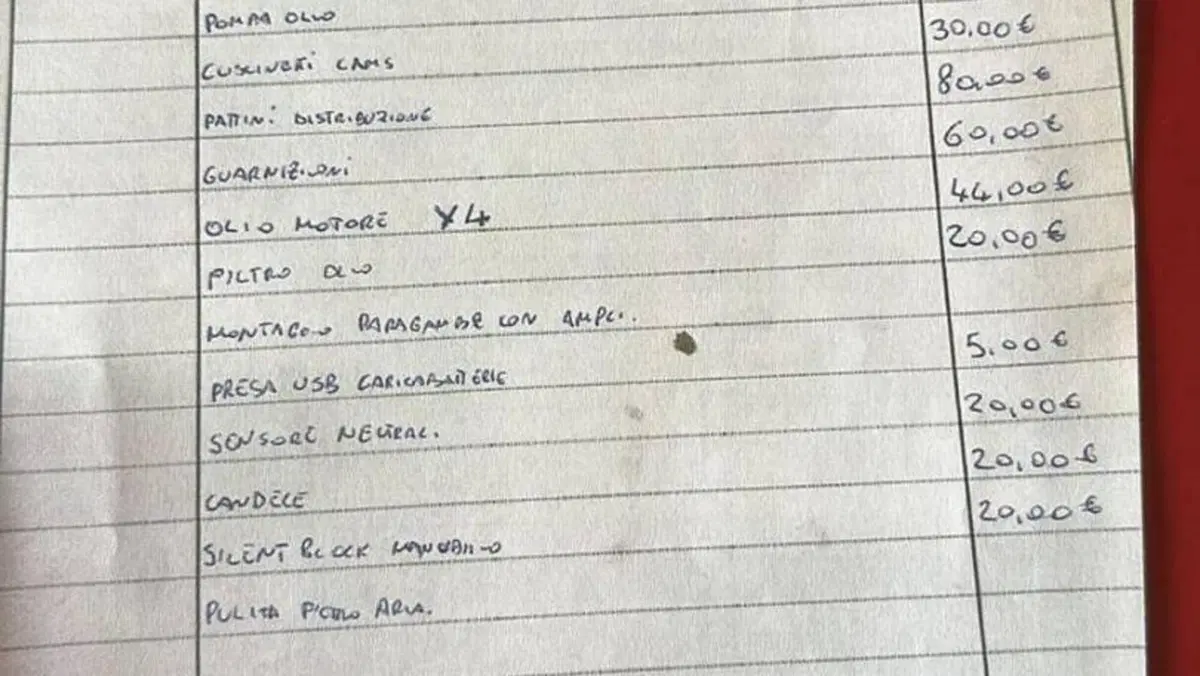 POMPA OLIO
CUSCINETI CAMS 30,00€
PATTINI DISTRIBUZIONE 80,00€
GUARNIZIONI 60,00€
OLIO MOTORE X4 44,00€
FILTRO OLIO 20,00€
MONTAGGIO PARAGAMBE CON
PRESA USB CARICABATTERIE 5.00€
SENSORE NEUTRAL. 20,00€
CANDELE 20,00€
SILENT BLOCK MANUBRIO 20,00€
PULITA FILTRO ARIA.